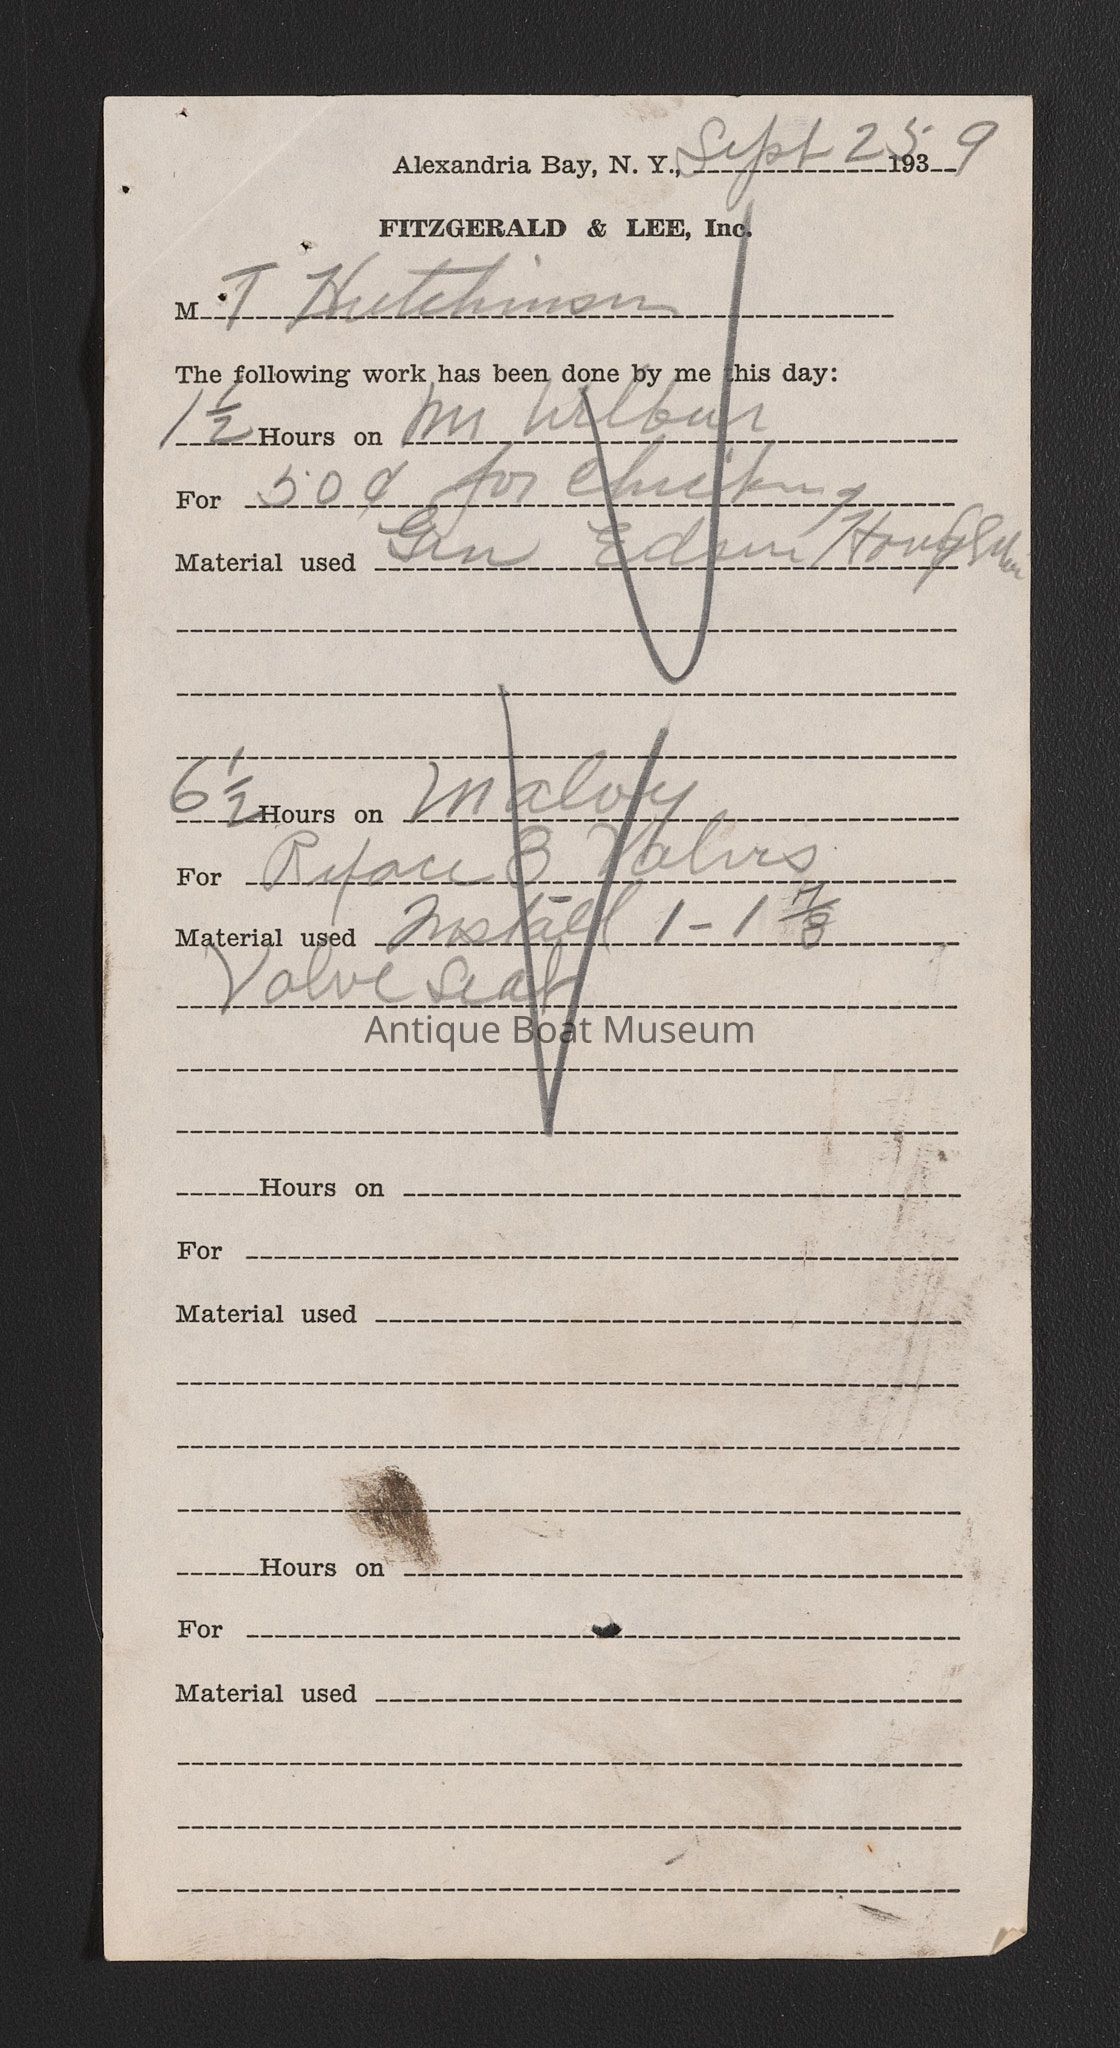 Alexandria Bay, N. Y., Sept 25 1939
FITZGERALD & LEE, Inc.
M T Hutchinson
The following work has been done by me this day:
1 1/2 Hours on Mr Wilbur
For 50¢ for checking
Material used Gen Edwin
6 1/2 Hours on Maloy
For Reface 8 Valves
Material used Install 1 - 1 7/8
Valve Seat
Antique Boat Museum
Hours on
For
Material used
Hours on
For
Material used